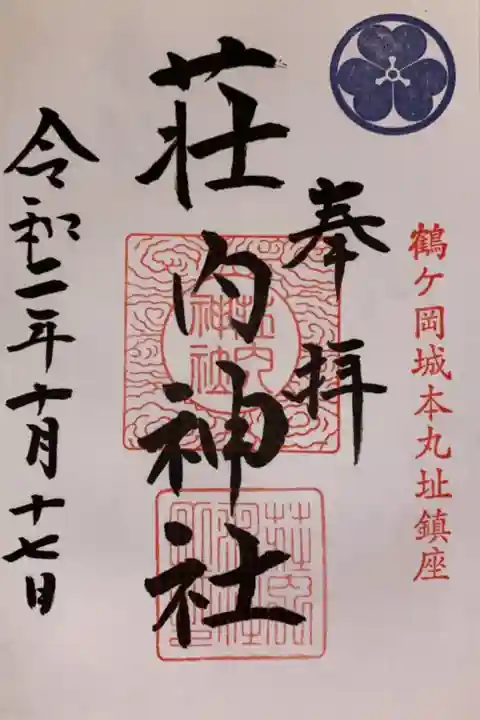 鶴ケ岡城本丸址鎮座
奉拝
荘内神社
荘内
神社
令和二年十月十七日